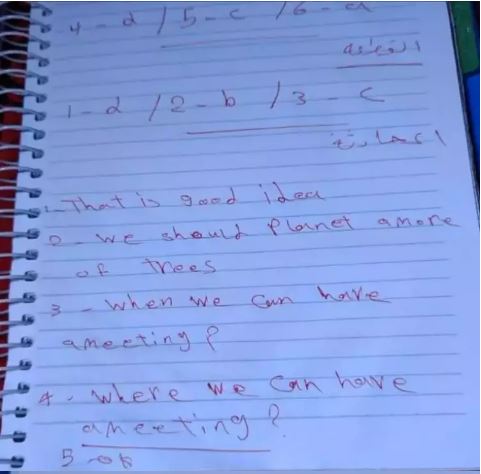 4 - d / 5 - c / 6 - a
القطعة
1 - d / 2 - b / 3 - c
1 - That is good idea
2 - we should Planet amore
of trees
3 - when we can have
ameeting?
4 - where we can have
ameeting?
5 - ok